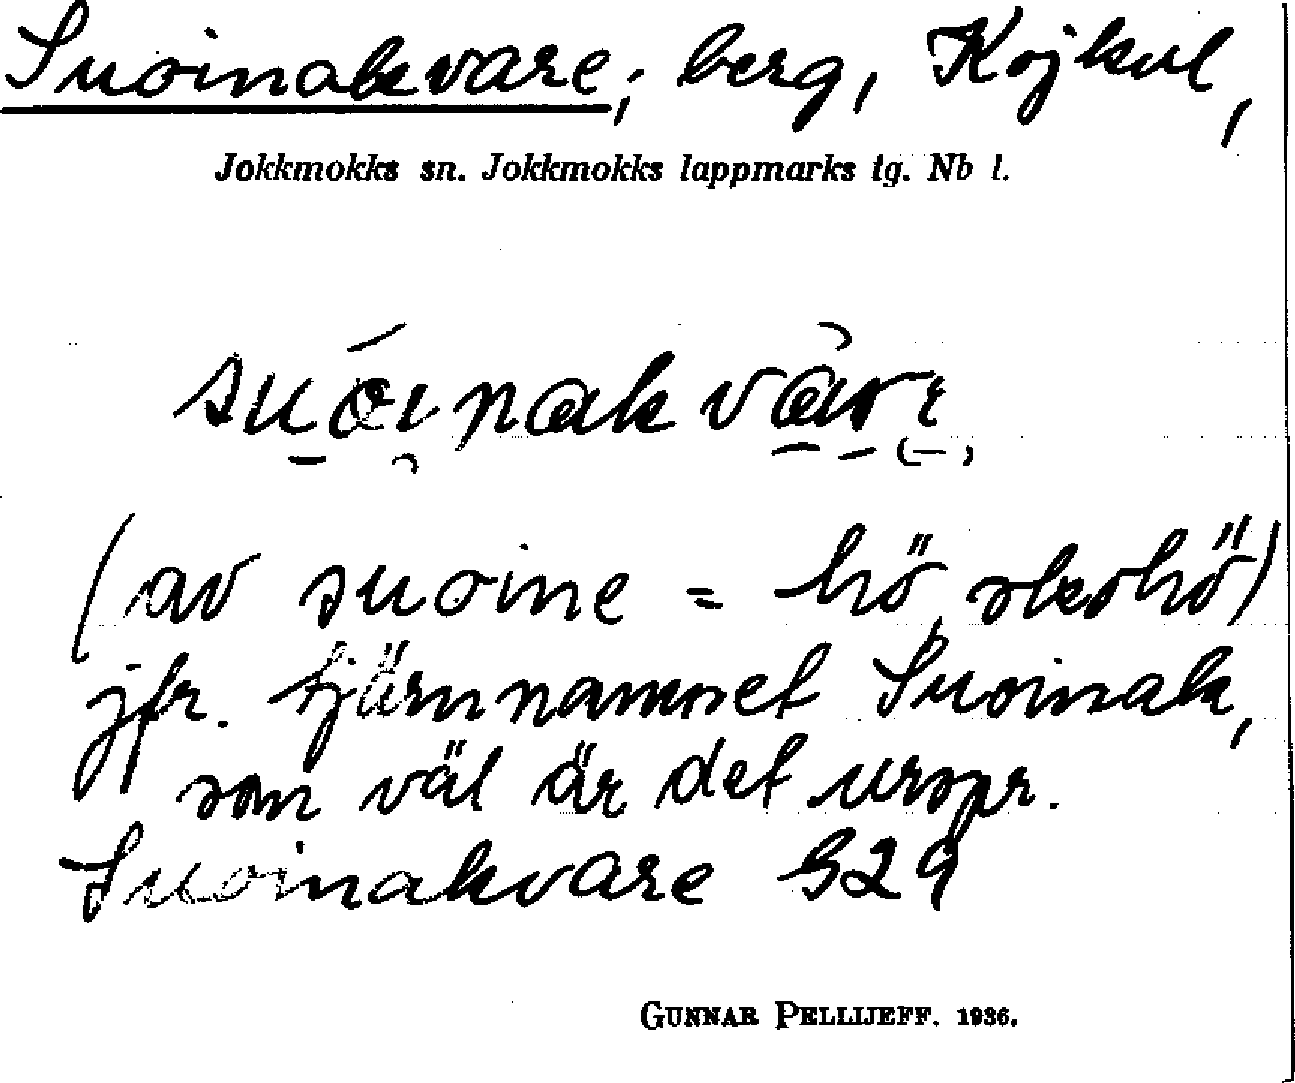 Suoinakvare, berg, Kojkul,
Jokkmokks sn. Jokkmokks lappmarks tg. Nb l.
suǻinakvàrɛ
(av suoine = hö, skohö)
jfr. tjärnnamnet Suoinak,
som väl är det urspr.
Suoinakvare G29
GUNNAR PELLIJEFF. 1936.